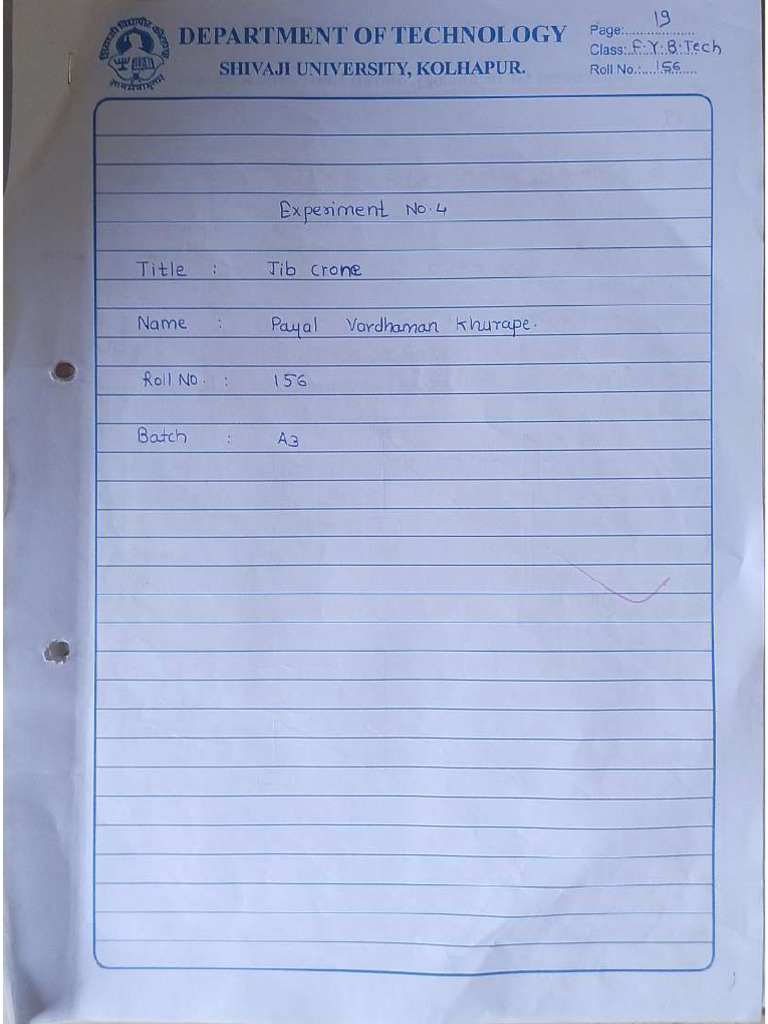 DEPARTMENT OF TECHNOLOGY
SHIVAJI UNIVERSITY, KOLHAPUR.
Page:........19........
Class:..F.Y.B.Tech
Roll No.:....156.....
Experiment No.4
Title : Jib Crane
Name : Payal Vardhaman Khurape.
Roll No. : 156
Batch : A3